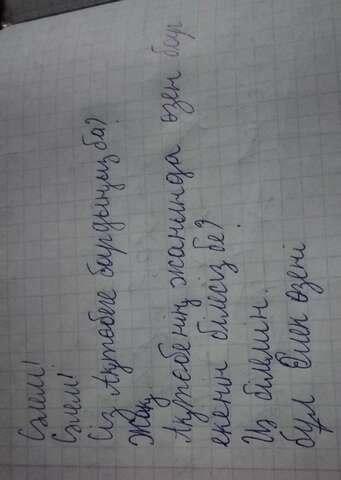 Сәлем!
Сәлем!
Сіз Ақтөбеге бардыңыз ба?
Жоқ
Ақтөбенің жанында өзен бар
екенін білесіз бе?
Из білемін.
бұл Елек өзені